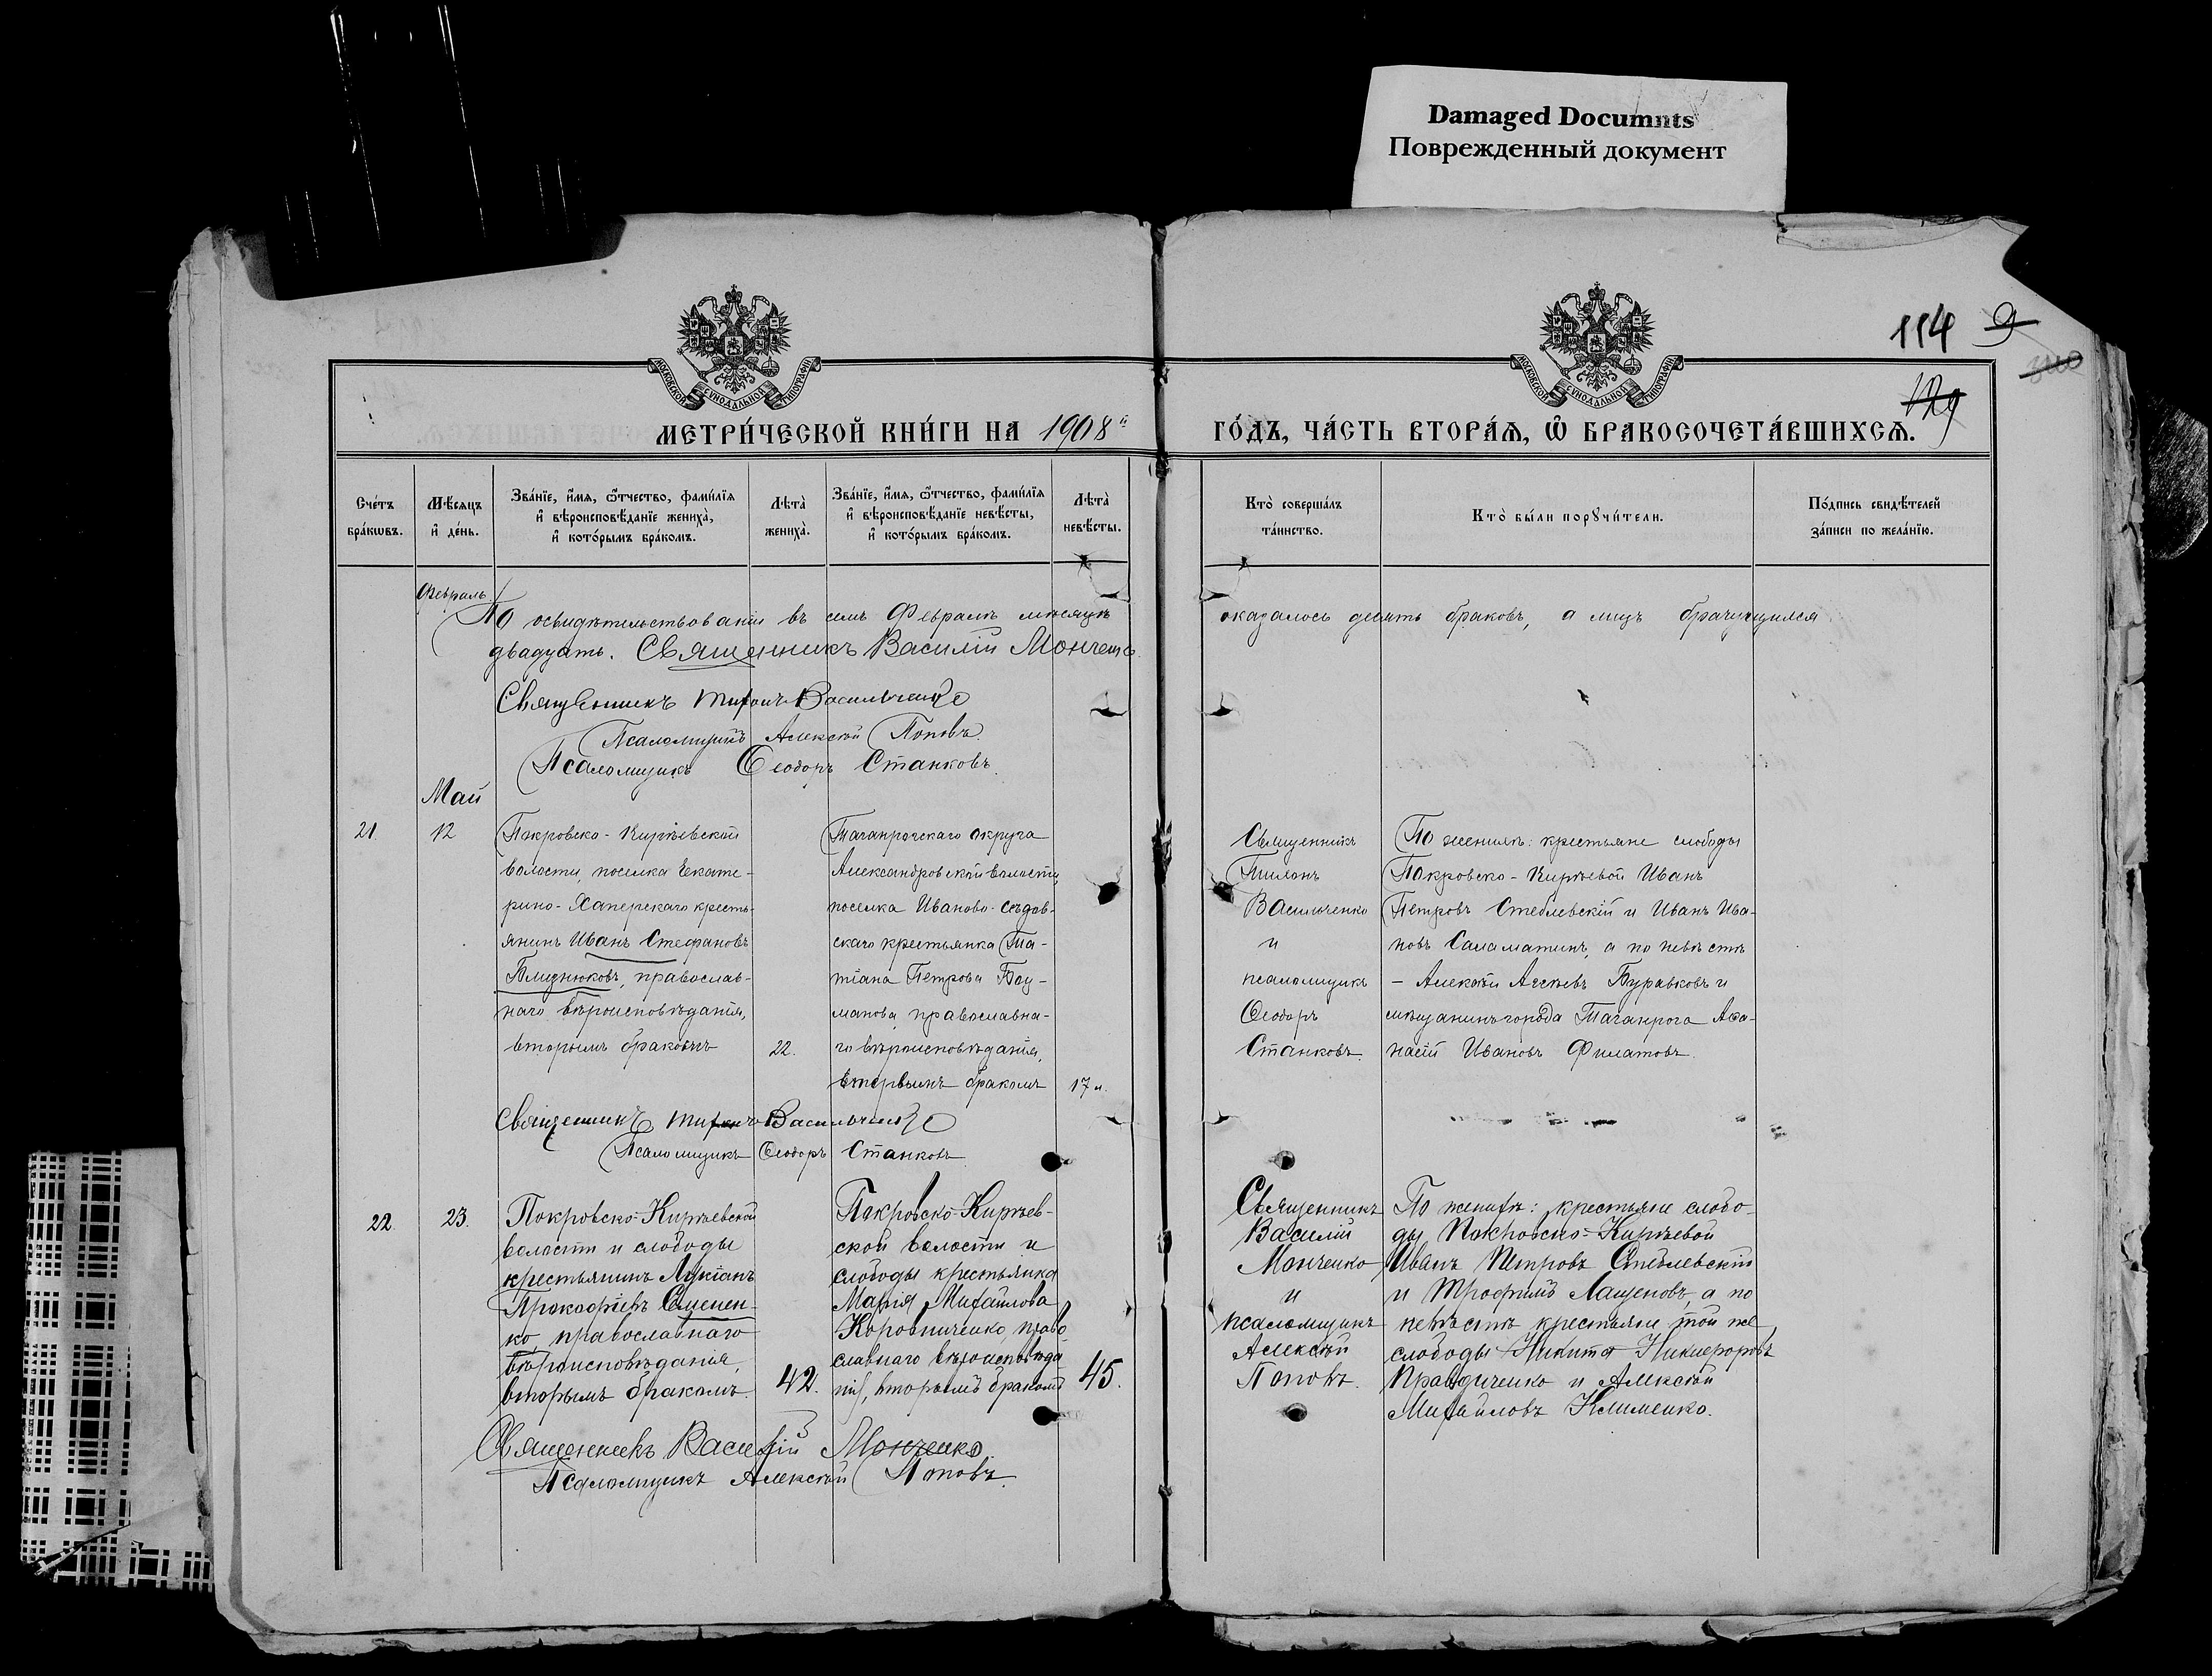 Damaged Documnts
Поврежденный документ
114 9
129
МОСКОВСКОЙ СУНОДАЛЬНОЙ ТИПОГРАФІИ
МОСКОВСКОЙ СУНОДАЛЬНОЙ ТИПОГРАФІИ
МЕТРИ́ЧЕСКОЙ КНИ́ГИ НА 1908й ГО́ДЪ, ЧА́СТЬ ВТОРА́Ѧ, Ѽ БРАКОСОЧЕТА́ВШИХСѦ.
Сче́тъ
бра́кѡвъ.
Мѣ́сяцъ
и҆ де́нь.
Зва́нїе, и҆́мѧ, ѻ҆́тчество, фами́лїѧ
и҆ вѣроисповѣ́данїе жениха̀,
и҆ кото́рымъ бра́комъ.
Лѣта̀
жениха̀.
Зва́нїе, и҆́мѧ, ѻ҆́тчество, фами́лїѧ
и҆ вѣроисповѣ́данїе невѣ́сты,
и҆ кото́рымъ бра́комъ.
Лѣта̀
невѣ́сты.
Кто̀ соверша́лъ
та́инство.
Кто̀ бы́ли порꙋчи́тели.
По́дпись свидѣ́телей
за́писи по жела́нїю.
Февраль
По освидѣтельствованіи въ семъ Февралѣ мѣсяцѣ оказалось десять браковъ, а лицъ брачущихся
двадцать. Священникъ Василій Мончено
Священникъ Тихонъ Васильченко
Псаломщикъ Алексѣй Поповъ
Псаломщикъ Ѳеодоръ Станковъ
Май
21.
12
Покровско-Кирѣевской
волости, поселка Екате-
рино-Хаперскаго кресть-
янинъ Иванъ Стефановъ
Близнюковъ, православ-
наго вѣроисповѣданія,
вторымъ бракомъ
22.
Таганрогскаго округа
Александровской волости,
поселка Иваново-Сѣдов-
скаго крестьянка Та-
тіана Петрова Бау-
манова, православна-
го вѣроисповѣданія,
первымъ бракомъ
17 л.
Священникъ
Тихонъ
Васильченко
и
псаломщикъ
Ѳеодоръ
Станковъ.
По женихѣ: крестьяне слободы
Покровско-Кирѣевой Иванъ
Петровъ Стеблевскій и Иванъ Ива-
новъ Саламатинъ, а по невѣстѣ
- Алексѣй Агѣевъ Буравковъ и
мѣщанинъ города Таганрога Аѳа-
насій Ивановъ Филатовъ.
Священникъ Тихонъ Васильченко
Псаломщикъ Ѳеодоръ Станковъ
22.
23.
Покровско-Кирѣевской
волости и слободы
крестьянинъ Лукіанъ
Прокофіевъ Семенен-
ко, православнаго
вѣроисповѣданія,
вторымъ бракомъ.
42.
Покровско-Кирѣев-
ской волости и
слободы крестьянка
Марія Михайлова
Коровниченко, право
славнаго вѣроисповѣда
нія, вторымъ бракомъ
45.
Священникъ
Василій
Монченко
и
псаломщикъ
Алексѣй
Поповъ.
По женихѣ: крестьяне слобо-
ды Покровско-Кирѣевой
Иванъ Петровъ Стеблевскій
и Трофимъ Лащеновъ, а по
невѣстѣ крестьяне той же
слободы Никита Никифоровъ
Правдиченко и Алексѣй
Михайловъ Клименко.
Священникъ Василій Монченко
Псаломщикъ Алексѣй Поповъ.